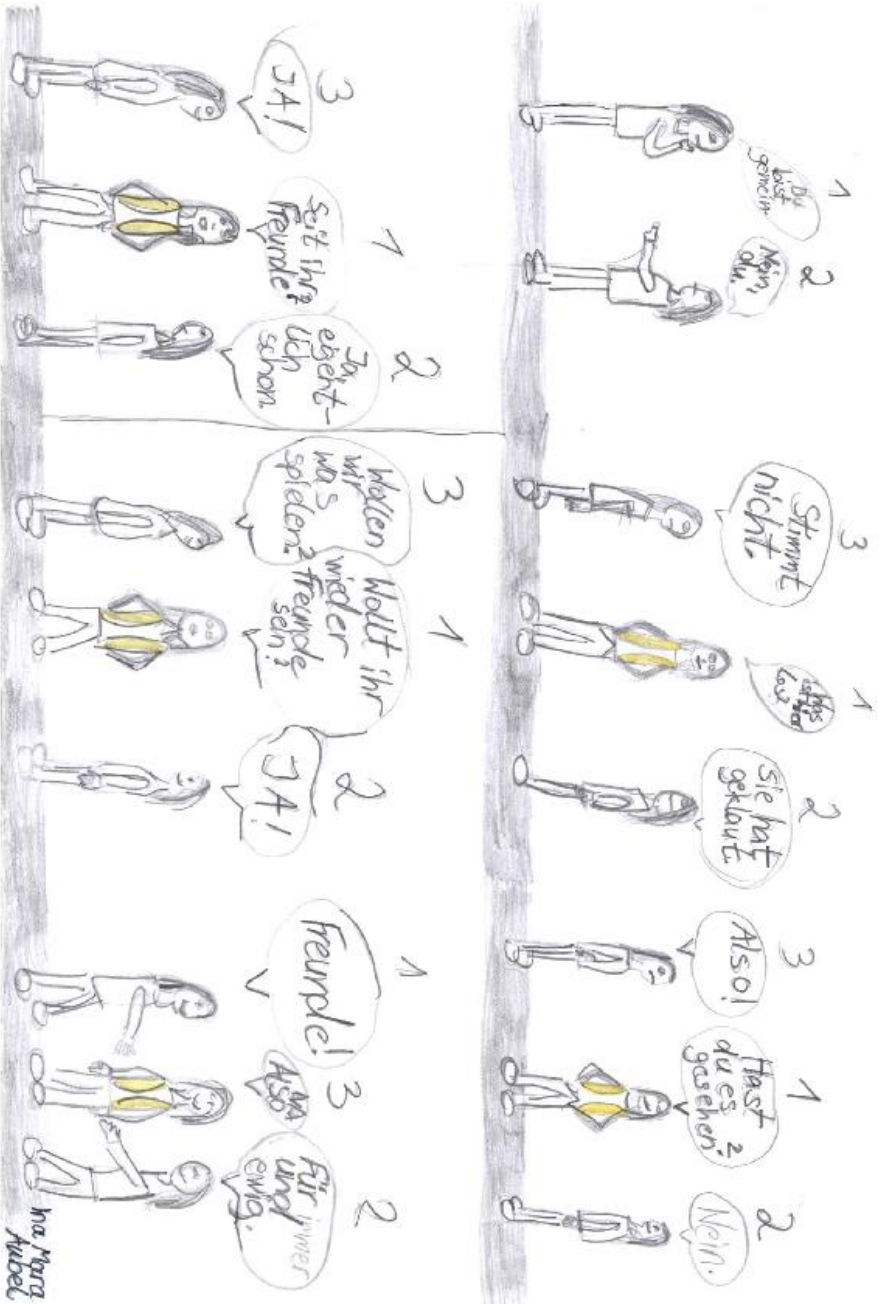 1
Du
bist
gemein.
2
Nein,
du.
3
Stimmt
nicht.
1
Was
ist hier
los?
2
Sie hat
geklaut.
3
Also!
1
Hast
du es
gesehen?
2
Nein.
3
JA!
1
Seit ihr
Freunde?
2
Ja,
eigent-
lich
schon.
3
Wollen
wir
was
spielen?
1
Wollt ihr
wieder
freunde
sein?
2
JA!
1
Freunde!
3
NA
ALSO
2
Für immer
und
ewig.
Ina Mara
Aubel